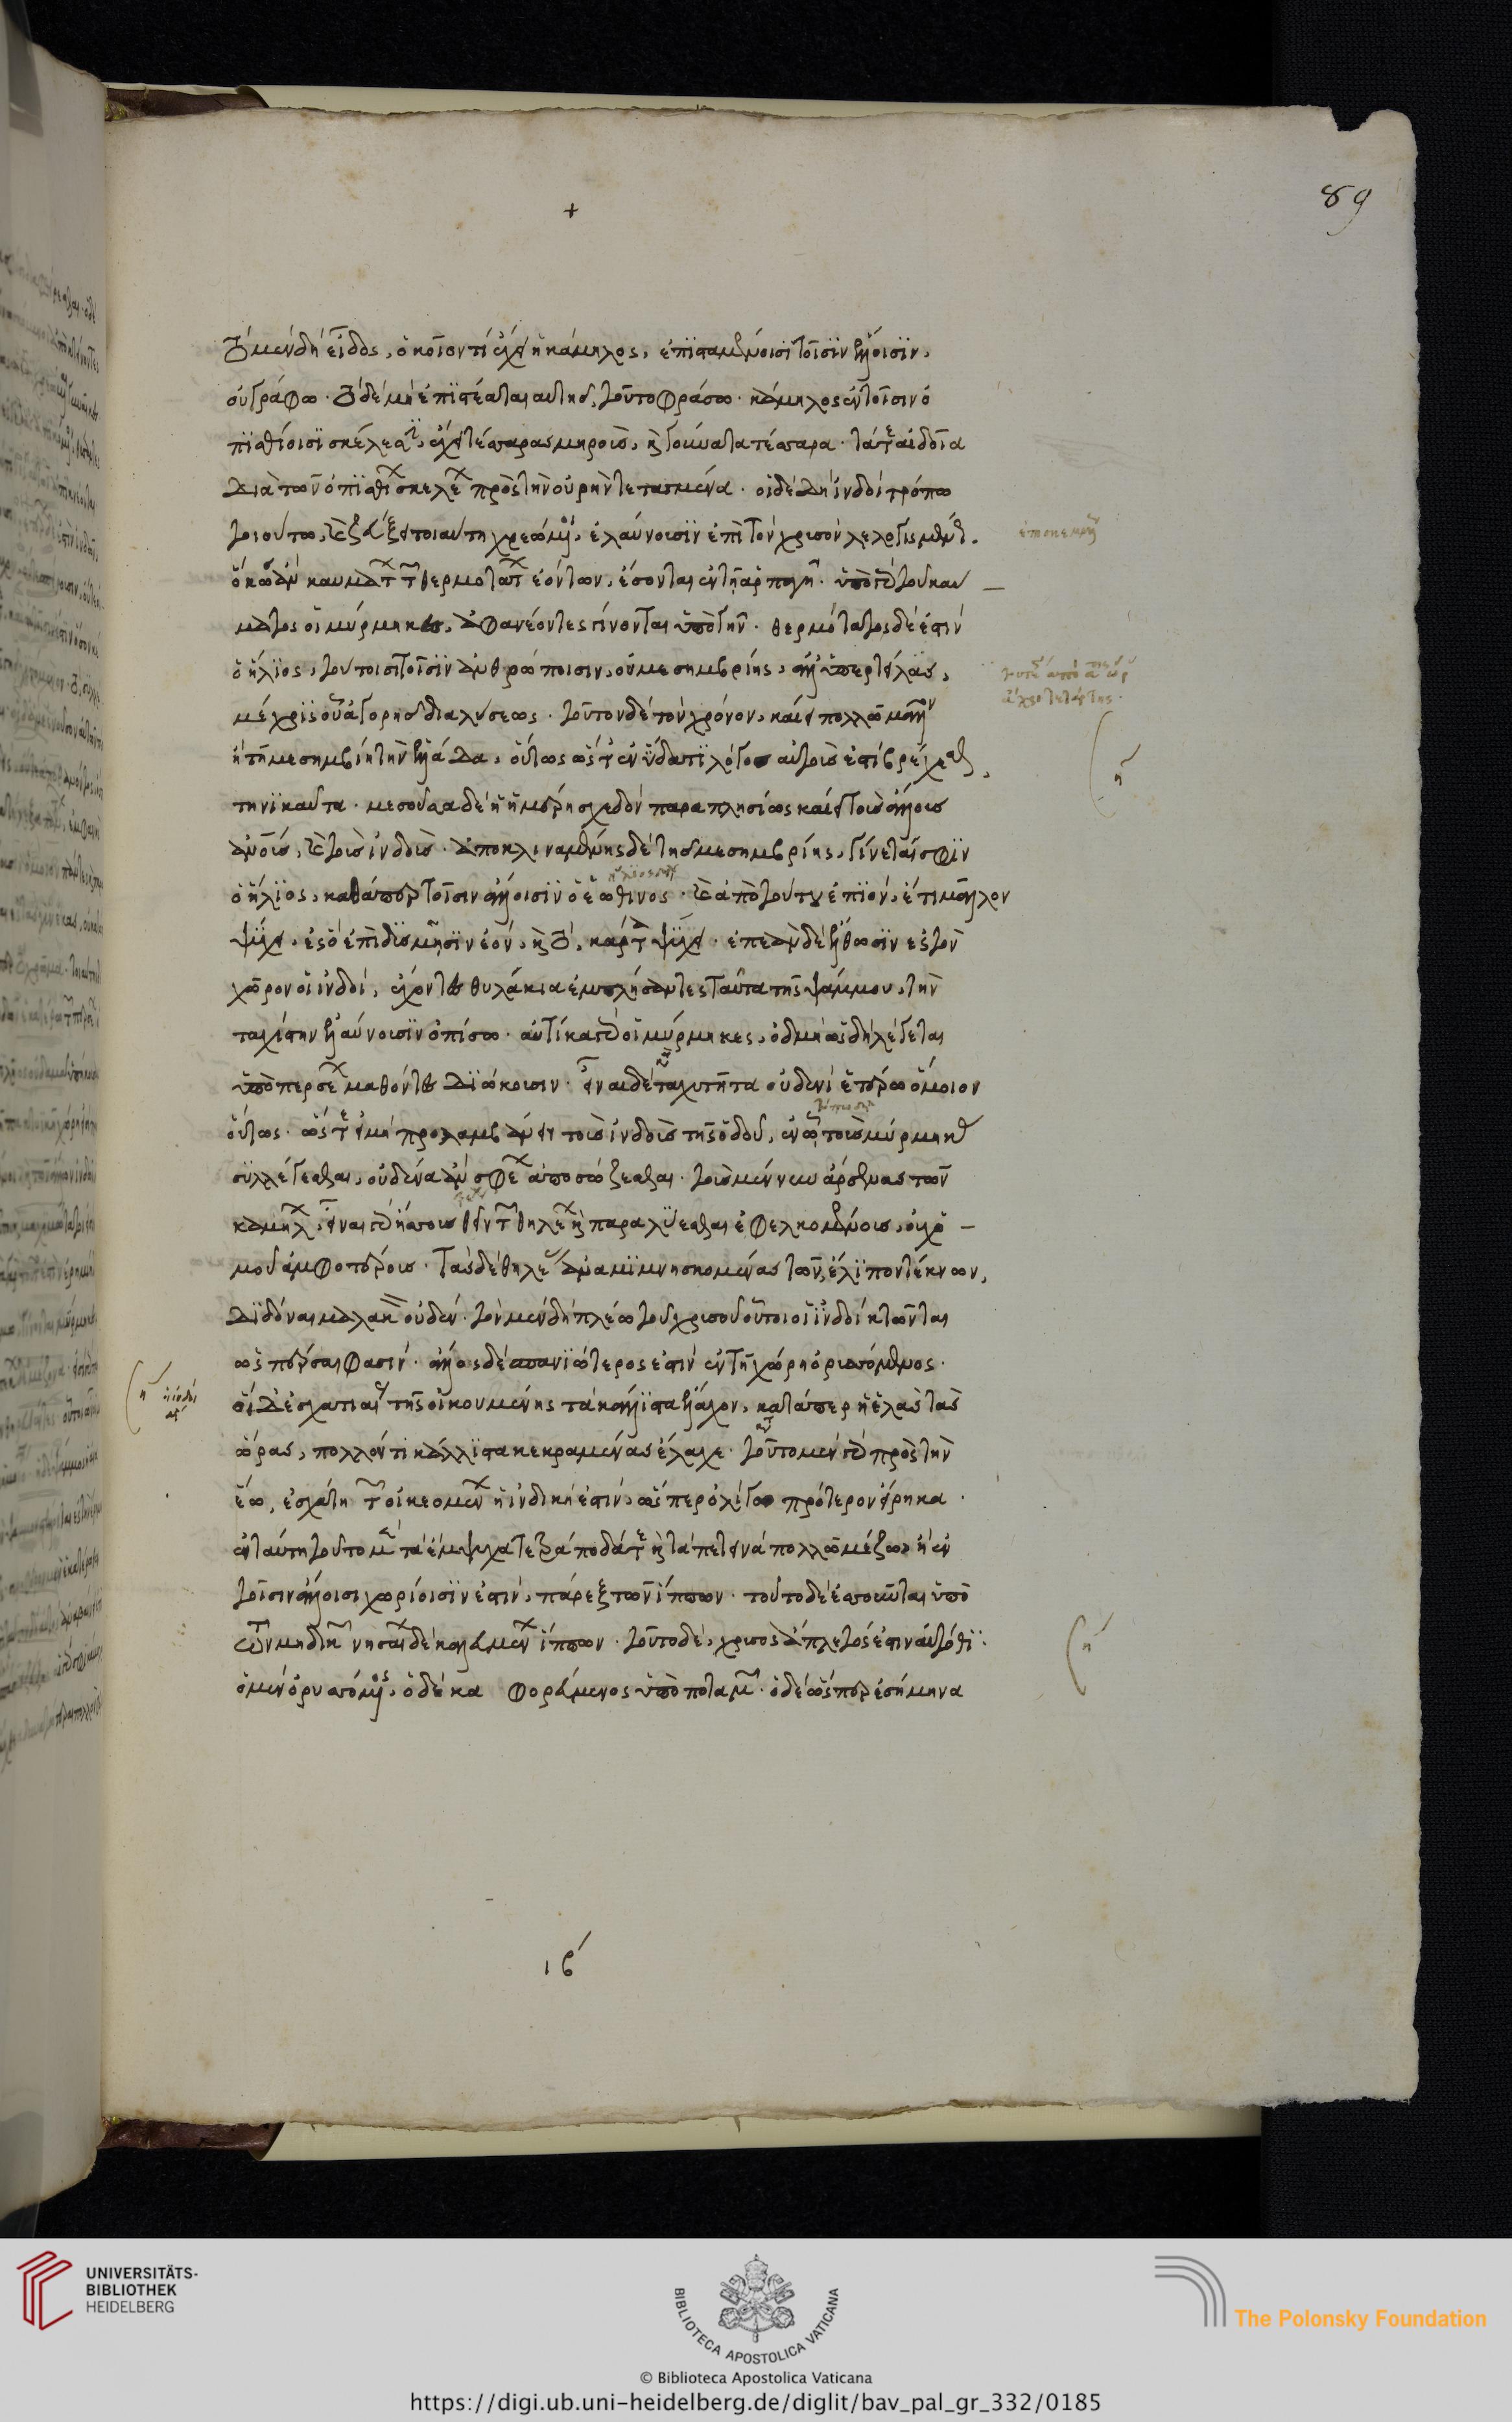 +
89
τὸ μὲν δὴ εἶδος, ὁκοῖόν τι ἔχει ἡ κάμηλος, ἐπισταμένοισι τοῖσιν ἕλλησιν,
οὐ γράφω. τὸ δὲ μὴ ἐπιστέαται αὐτῆς, τοῦτο φράσω. κάμηλος ἐν τοῖσιν ὀ
πισθίοισι σκέλεσι, ἔχει τέσσαρας μηροὺς, καὶ γούνατα τέσσαρα. τά τε αἰδοῖα
διὰ τῶν ὀπισθίων σκελέων πρὸς τὴν οὐρὴν τετραμμένα. οἱ δὲ δὴ ἰνδοὶ τρόπω
τοιούτω, καὶ ζεύξει τοιαύτη χρεώμενοι, ἐλαύνουσιν ἐπὶ τὸν χρυσὸν λελογισμένως
ὅκως ἂν καυμάτων τῶν θερμοτάτων ἐόντων, ἔσονται ἐν τῆ ἁρπαγῆ. ὑπὸ γὰρ τοῦ καύ
ματος οἱ μύρμηκες, ἀφανέοντες γίνονται ὑπὸ γῆν. θερμότατος δέ ἐστιν
ὁ ἥλιος, τούτοισι τοῖσιν ἀνθρώποισιν, οὐ μεσημβρίης, ἀλλ' ὑπερτείλας,
μέχρις οὗ ἀγορῆς διαλύσεως. τοῦτον δὲ τὸν χρόνον, καίει πολλῶ μᾶλλον
ἢ τῆ μεσημβρίη τὴν ἑλλάδα, οὕτως ὥστ' ἐν ὕδατι λόγος αὐτοὺς ἐστὶ βρέχεσθαι
τηνικαῦτα. μεσοῦσα δὲ ἡ ἡμέρη σχεδὸν παραπλησίως καίει τοὺς ἄλλους
ἀνους, καὶ τοὺς ἰνδούς. ἀποκλιναμένης δὲ τῆς μεσημβρίης, γίνεταί σφιν
ὁ ἥλιος, κατάπερ τοῖσιν ἄλλοισιν ὁ ἑωθινός. καὶ ἀπὸ τούτου ἐπιὸν, ἔτι μᾶλλον
ψύχει, ἐς ὃ ἐπὶ δυσμῆσιν ἐὸν, καὶ τὸ, κάρτα ψύχει. ἐπεὰν δὲ ἔλθωσιν ἐς τὸν
χῶρον οἱ ἰνδοὶ, ἔχοντες θυλάκια ἐμπλήσαντες ταῦτα τῆς ψάμμου, τὴν
ταχίστην ἐλαύνουσιν ὀπίσω. αὐτίκα γὰρ οἱ μύρμηκες, ὀδμῆ ὡς δὴ λέγεται
ὑπὸ περσέων μαθόντες διώκουσιν. εἶναι δὲ ταχυτῆτα οὐδενὶ ἑτέρω ὅμοιον
οὕτως. ὥστε εἰ μὴ προλαμβάνειν τοὺς ἰνδοὺς τῆς ὁδοῦ, ἐν ὧ τοὺς μύρμηκας
συλλέγεσθαι, οὐδένα ἂν σφέων ἀποσώζεσθαι. τοὺς μέν νυν ἄρσενας τῶν
καμήλων, εἶναι γὰρ ἥσσους θεῖν τῶν θηλέων καὶ παραλύεσθαι ἐφελκομένους, οὐχ ὁ
μοῦ ἀμφοτέρους. τὰς δὲ θηλέας ἀναμιμνησκομένας τῶν ἔλιπον τέκνων,
διδόναι μαλακὸν οὐδέν. τὸν μὲν δὴ πλέω τοῦ χρυσοῦ οὕτω οἱ ἰνδοὶ κτῶνται
ὡς πέρσαι φασίν. ἄλλος δὲ σπανιώτερος ἐστὶν ἐν τῆ χώρη ὀρυσσόμενος.
αἱ δ' ἐσχατιαί κως τῆς οἰκουμένης τὰ κάλλιστα ἔλαχον, κατάπερ ἡ ἑλλὰς τὰς
ὥρας, πολλόν τι κάλλιστα κεκραμένας ἔλαχε. τοῦτο μὲν γὰρ πρὸς τὴν
ἕω, ἐσχάτη τῶν οἰκεομένων ἡ ἰνδική ἐστιν, ὥσπερ ὀλίγω πρότερον εἴρηκα.
ἐν ταύτη τοῦτο μὲν τὰ ἔμψυχα τετράποδά τε καὶ τὰ πετεινὰ πολλῶ μέζω ἢ ἐν
τοῖσιν ἄλλοισι χωρίοισίν ἐστιν, πάρεξ τῶν ἵππων. τοῦτο δὲ ἑσσοῦνται ὑπὸ
τῶν μηδικῶν νησαίων δὲ καλευμένων ἵππων. τοῦτο δὲ, χρυσὸς ἄπλετός ἐστιν αὐτόθι.
ὁ μὲν ὀρυσσόμενος, ὁ δὲ κα φορεύμενος ὑπὸ ποταμῶν. ὁ δὲ ὥσπερ ἐσήμηνα
ιβ΄
UNIVERSITÄTS-
BIBLIOTHEK
HEIDELBERG
BIBLIOTECA APOSTOLICA VATICANA
The Polonsky Foundation
© Biblioteca Apostolica Vaticana
https://digi.ub.uni-heidelberg.de/diglit/bav_pal_gr_332/0185